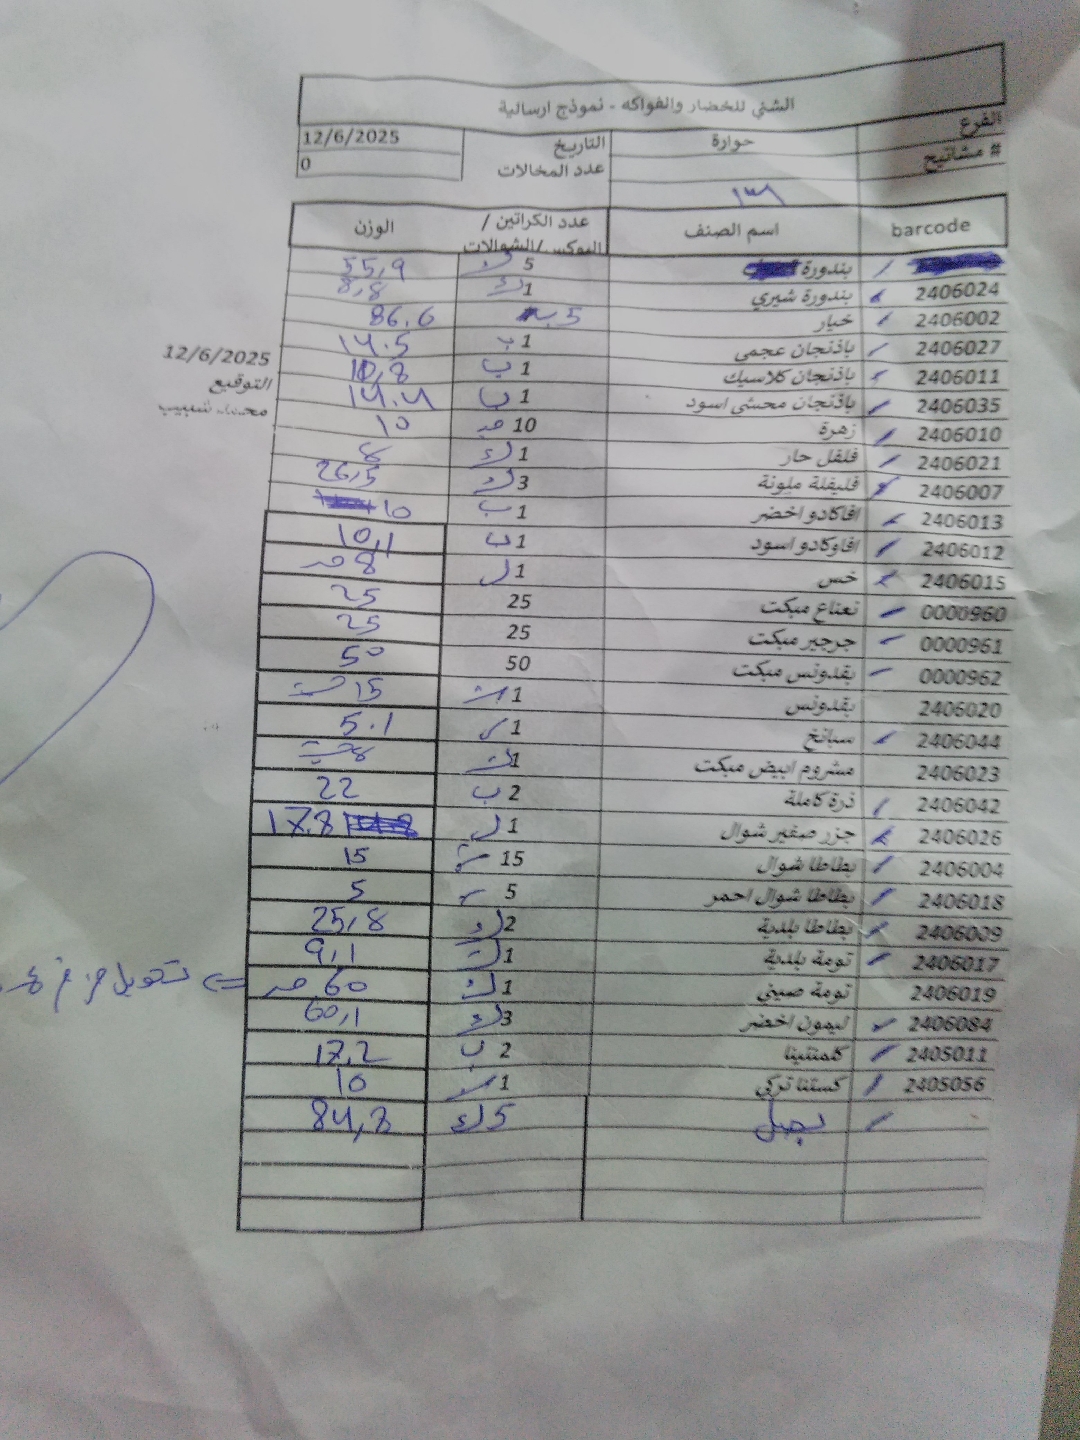 الشني للخضار والفواكه - نموذج ارسالية
الفرع حوارة التاريخ 12/6/2025
# مشاتيح ١٣١ عدد المخالات 0
barcode اسم الصنف عدد الكراتين / البوكس/الشوالات الوزن
بندورة 5 ك 55,9
2406024 بندورة شيري 1 ك 8,8
2406002 خيار 5 ب 86.6
2406027 باذنجان عجمي 1 ب 14.5
2406011 باذنجان كلاسيك 1 ب 10,8
2406035 باذنجان محشي اسود 1 ب 14.4
2406010 زهرة 10 10
2406021 فلفل حار 1 ك 8
2406007 فليفلة ملونة 3 ك 26,5
2406013 افاكادو اخضر 1 ب 10
2406012 افاوكادو اسود 1 ب 10,1
2406015 خس 1 8
0000960 نعناع مبكت 25 25
0000961 جرجير مبكت 25 25
0000962 بقدونس مبكت 50 50
2406020 بقدونس 1 15
2406044 سبانخ 1 5.1
2406023 مشروم ابيض مبكت 1 8
2406042 ذرة كاملة 2 ب 22
2406026 جزر صغير شوال 1 17.8
2406004 بطاطا شوال 15 15
2406018 بطاطا شوال احمر 5 5
2406009 بطاطا بلدية 2 ك 25,8
2406017 تومة بلدية 1 9,1
2406019 تومة صيني 1 60
2406084 ليمون اخضر 3 ك 60,1
2405011 كلمنتينا 2 ب 17,2
2405056 كستنا تركي 1 10
بصل 5 ك 84,8
12/6/2025
التوقيع
محمد شبيب
<= تحويل من